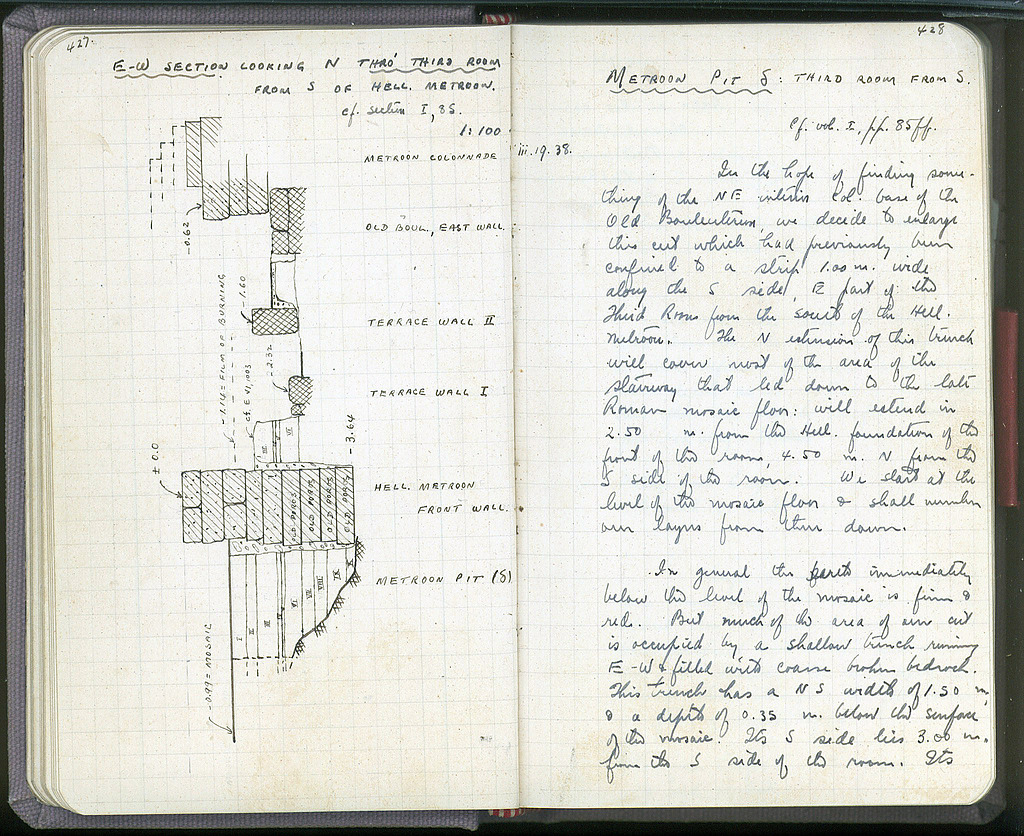 427.
E-W SECTION LOOKING N THRO' THIRD ROOM
FROM S OF HELL. METROON.
cf. section I, 85.
1:100
METROON COLONNADE
-0.62
OLD BOUL., EAST WALL
-1.60
TERRACE WALL II
-1.14 = FILM OF BURNING
cf. E VI, 1003
-2.32
TERRACE WALL I
-3.64
± 0.0
III
VI
HELL. METROON
FRONT WALL.
OLD POROS
OLD POROS
OLD POROS
OLD POROS
METROON PIT (δ)
I
II
III
VI
VII
VIII
IX
X
-0.99 = MOSAIC
428
METROON PIT δ: THIRD ROOM FROM S.
cf. vol. I, pp. 85ff.
iii.19.38.
In the hope of finding some-
thing of the NE interior col. base of the
Old Bouleuterion, we decide to enlarge
this cut which had previously been
confined to a strip 1.00 m. wide
along the S side, E part of the
Third Room from the south of the Hell.
Metroon. The N extension of this trench
will cover most of the area of the
stairway that led down to the late
Roman mosaic floor: will extend in
2.50 m. from the Hell. foundation of the
front of the room, 4.50 m. N from the
S side of the room. We start at the
level of the mosaic floor & shall number
our layers from there down.
In general the earth immediately
below the level of the mosaic is firm &
red. But much of the area of our cut
is occupied by a shallow trench running
E-W & filled with coarse broken bedrock.
This trench has a N S width of 1.50 m,
& a depth of 0.35 m. below the surface
of the mosaic. Its S side lies 3.00 m.
from the S side of the room. Its